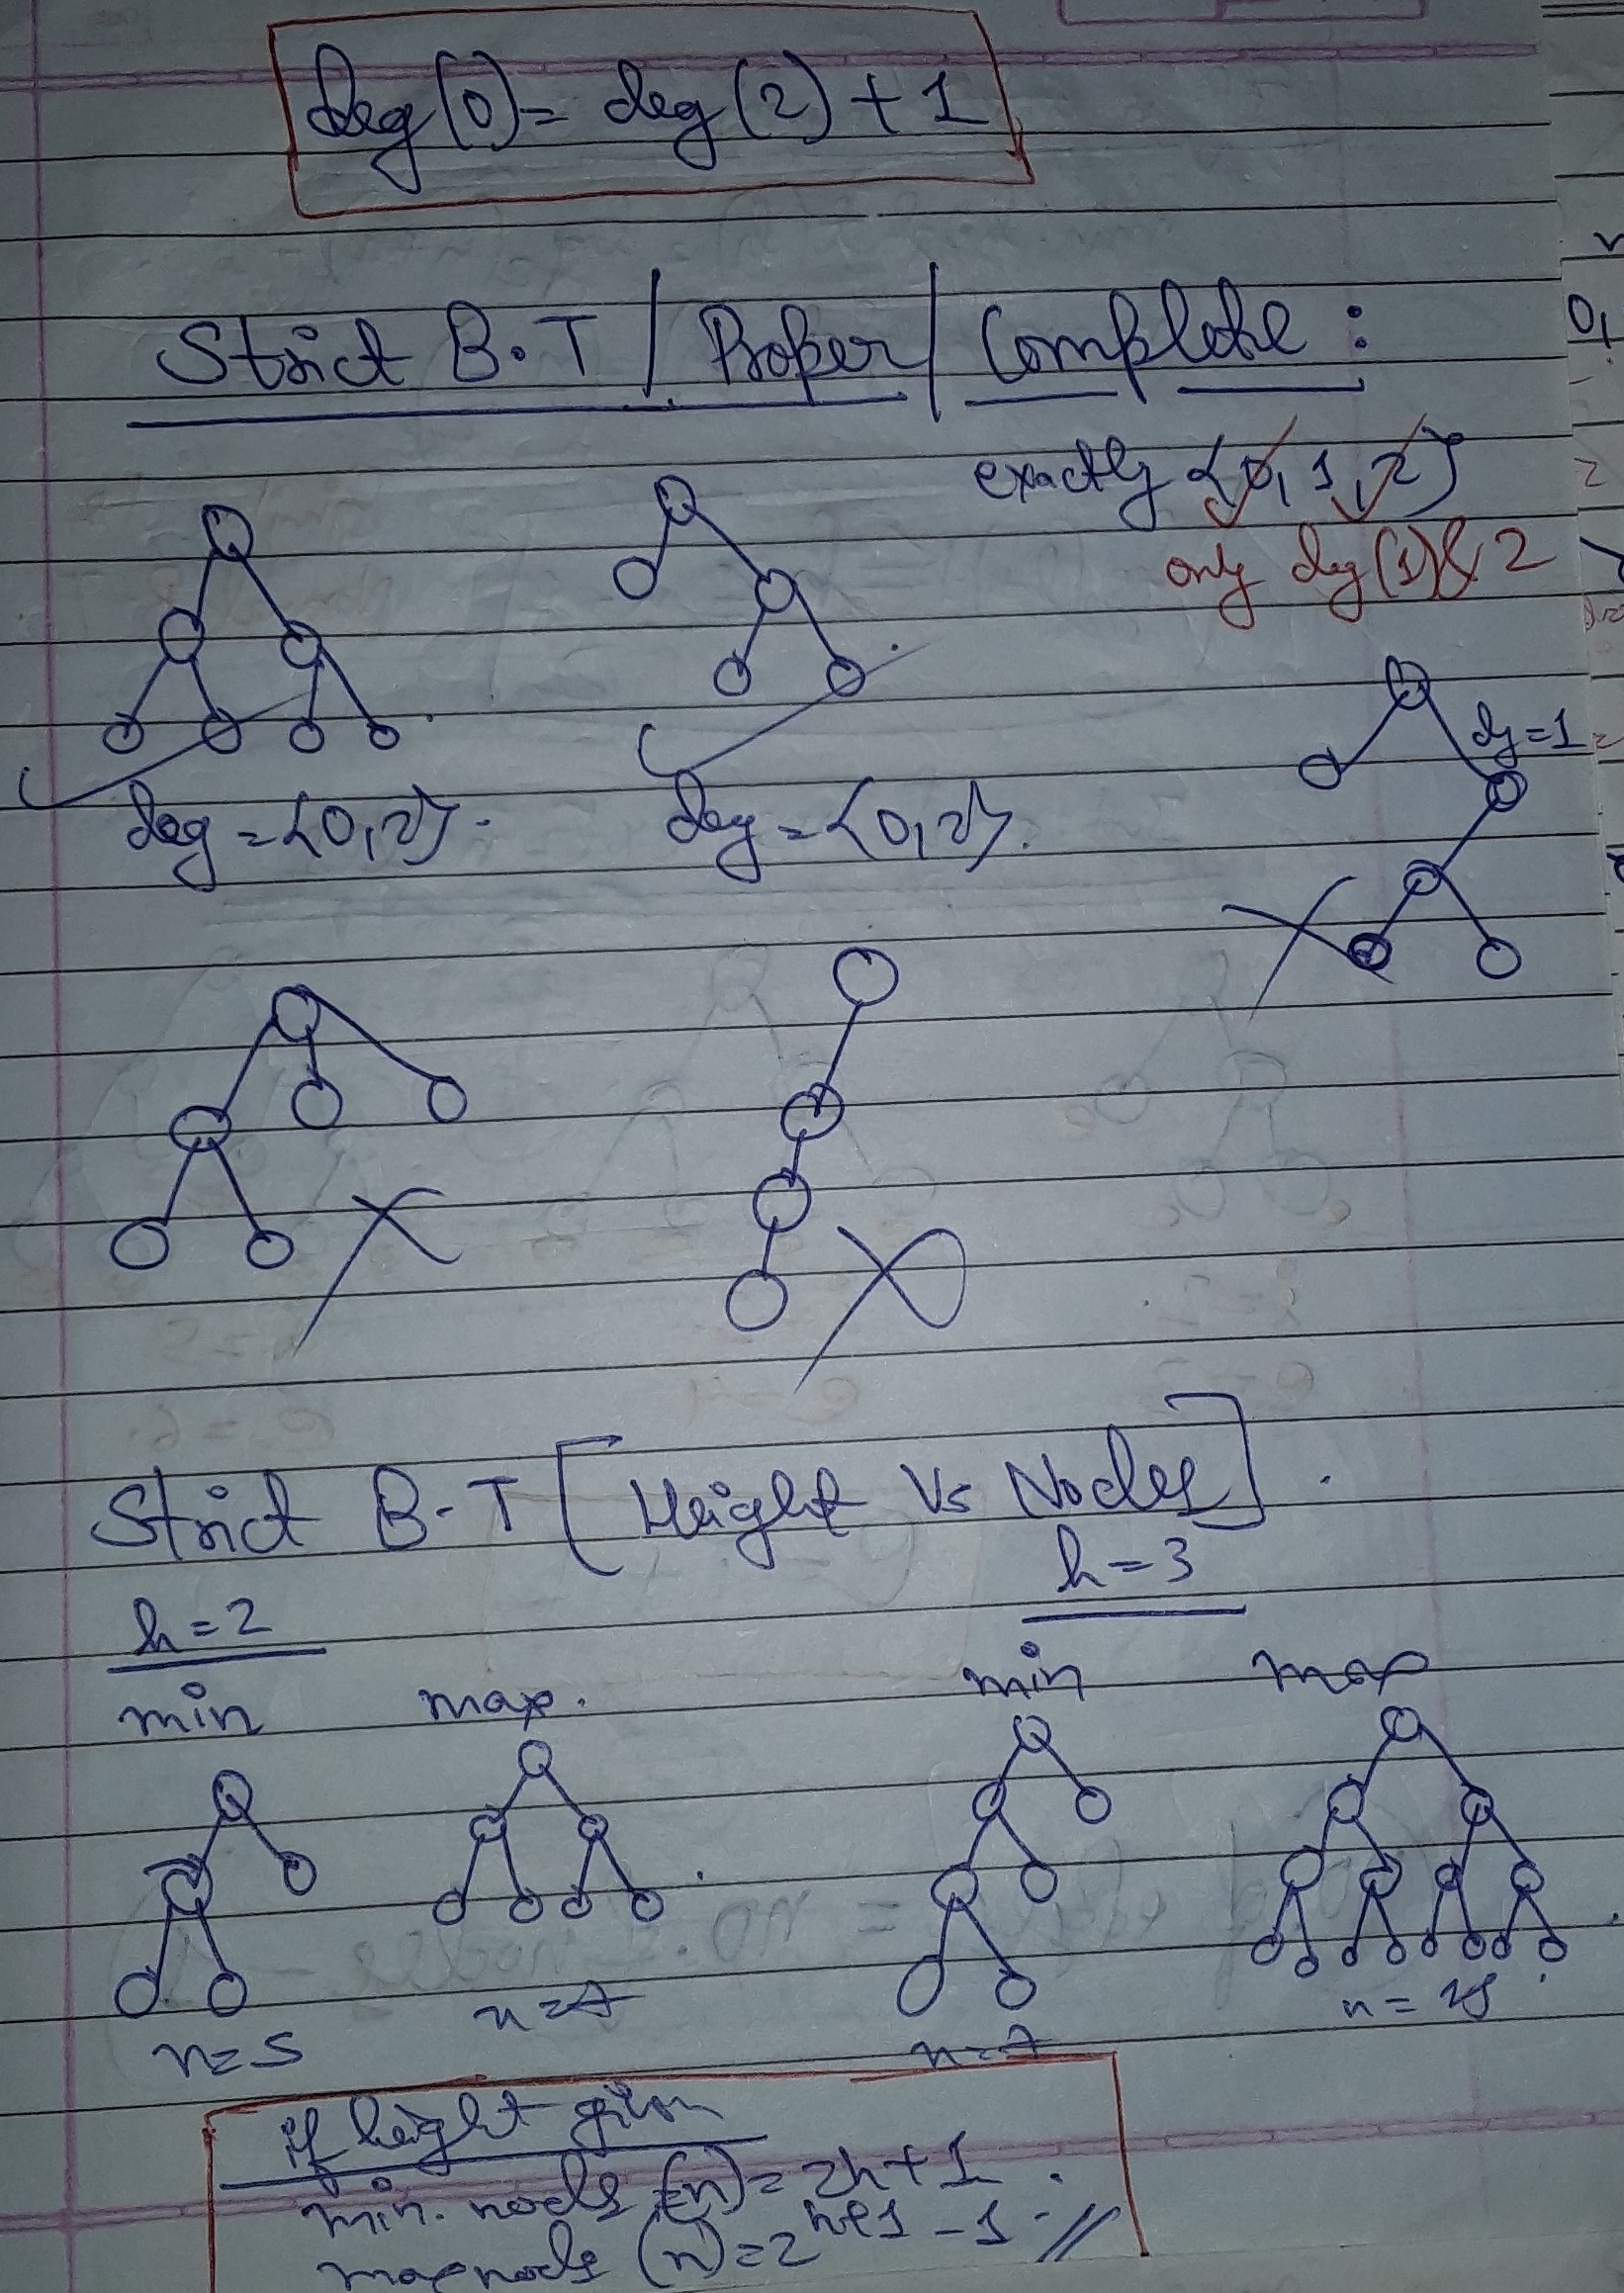 deg(0) = deg(2) + 1
Strict B.T / Proper / Complete :
exactly {0, 1, 2}
only deg(1) & 2
deg = 1
deg = {0, 2}.
deg = {0, 2}.
Strict B-T [Height Vs Nodes].
h = 2
h = 3
min
max.
min
max
n = 5
n = 7
n = 7
n = 15
if height given
min. nodes (n) = 2h + 1.
max nodes (n) = 2^h+1 - 1.//